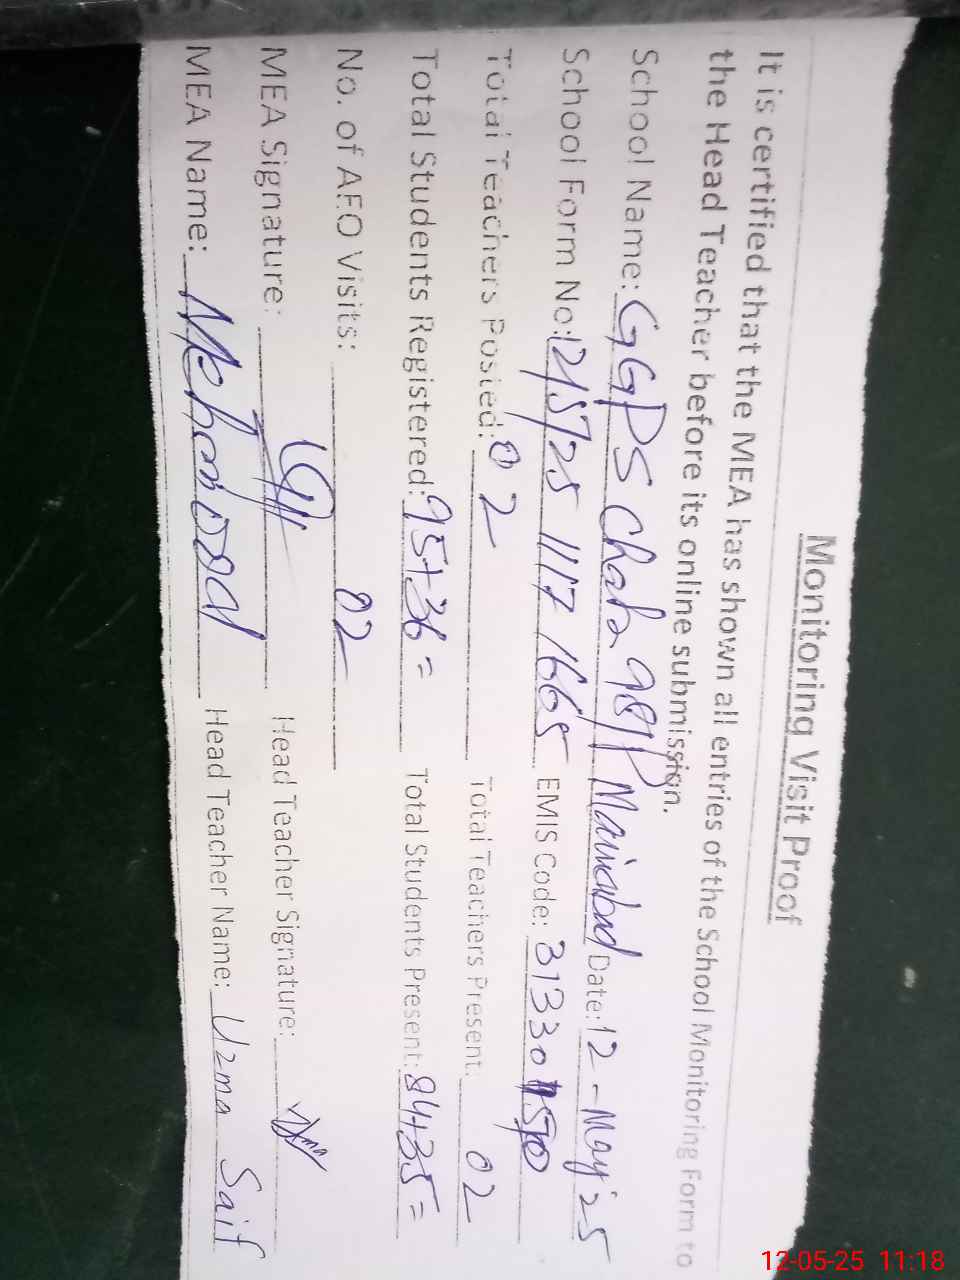 Monitoring Visit Proof
It is certified that the MEA has shown all entries of the School Monitoring Form to
the Head Teacher before its online submission.
School Name: GGPS Chak 98/P Mainabad Date: 12-May'25
School Form No: 12/5/25 1117 1665 EMIS Code: 31330
Total Teachers Posted: 02 Total Teachers Present: 02
Total Students Registered: 95+36= Total Students Present: 84+35=
No. of AEO Visits: 02
MEA Signature: Head Teacher Signature:
MEA Name: Head Teacher Name: Uzma Saif
12-05-25 11:18